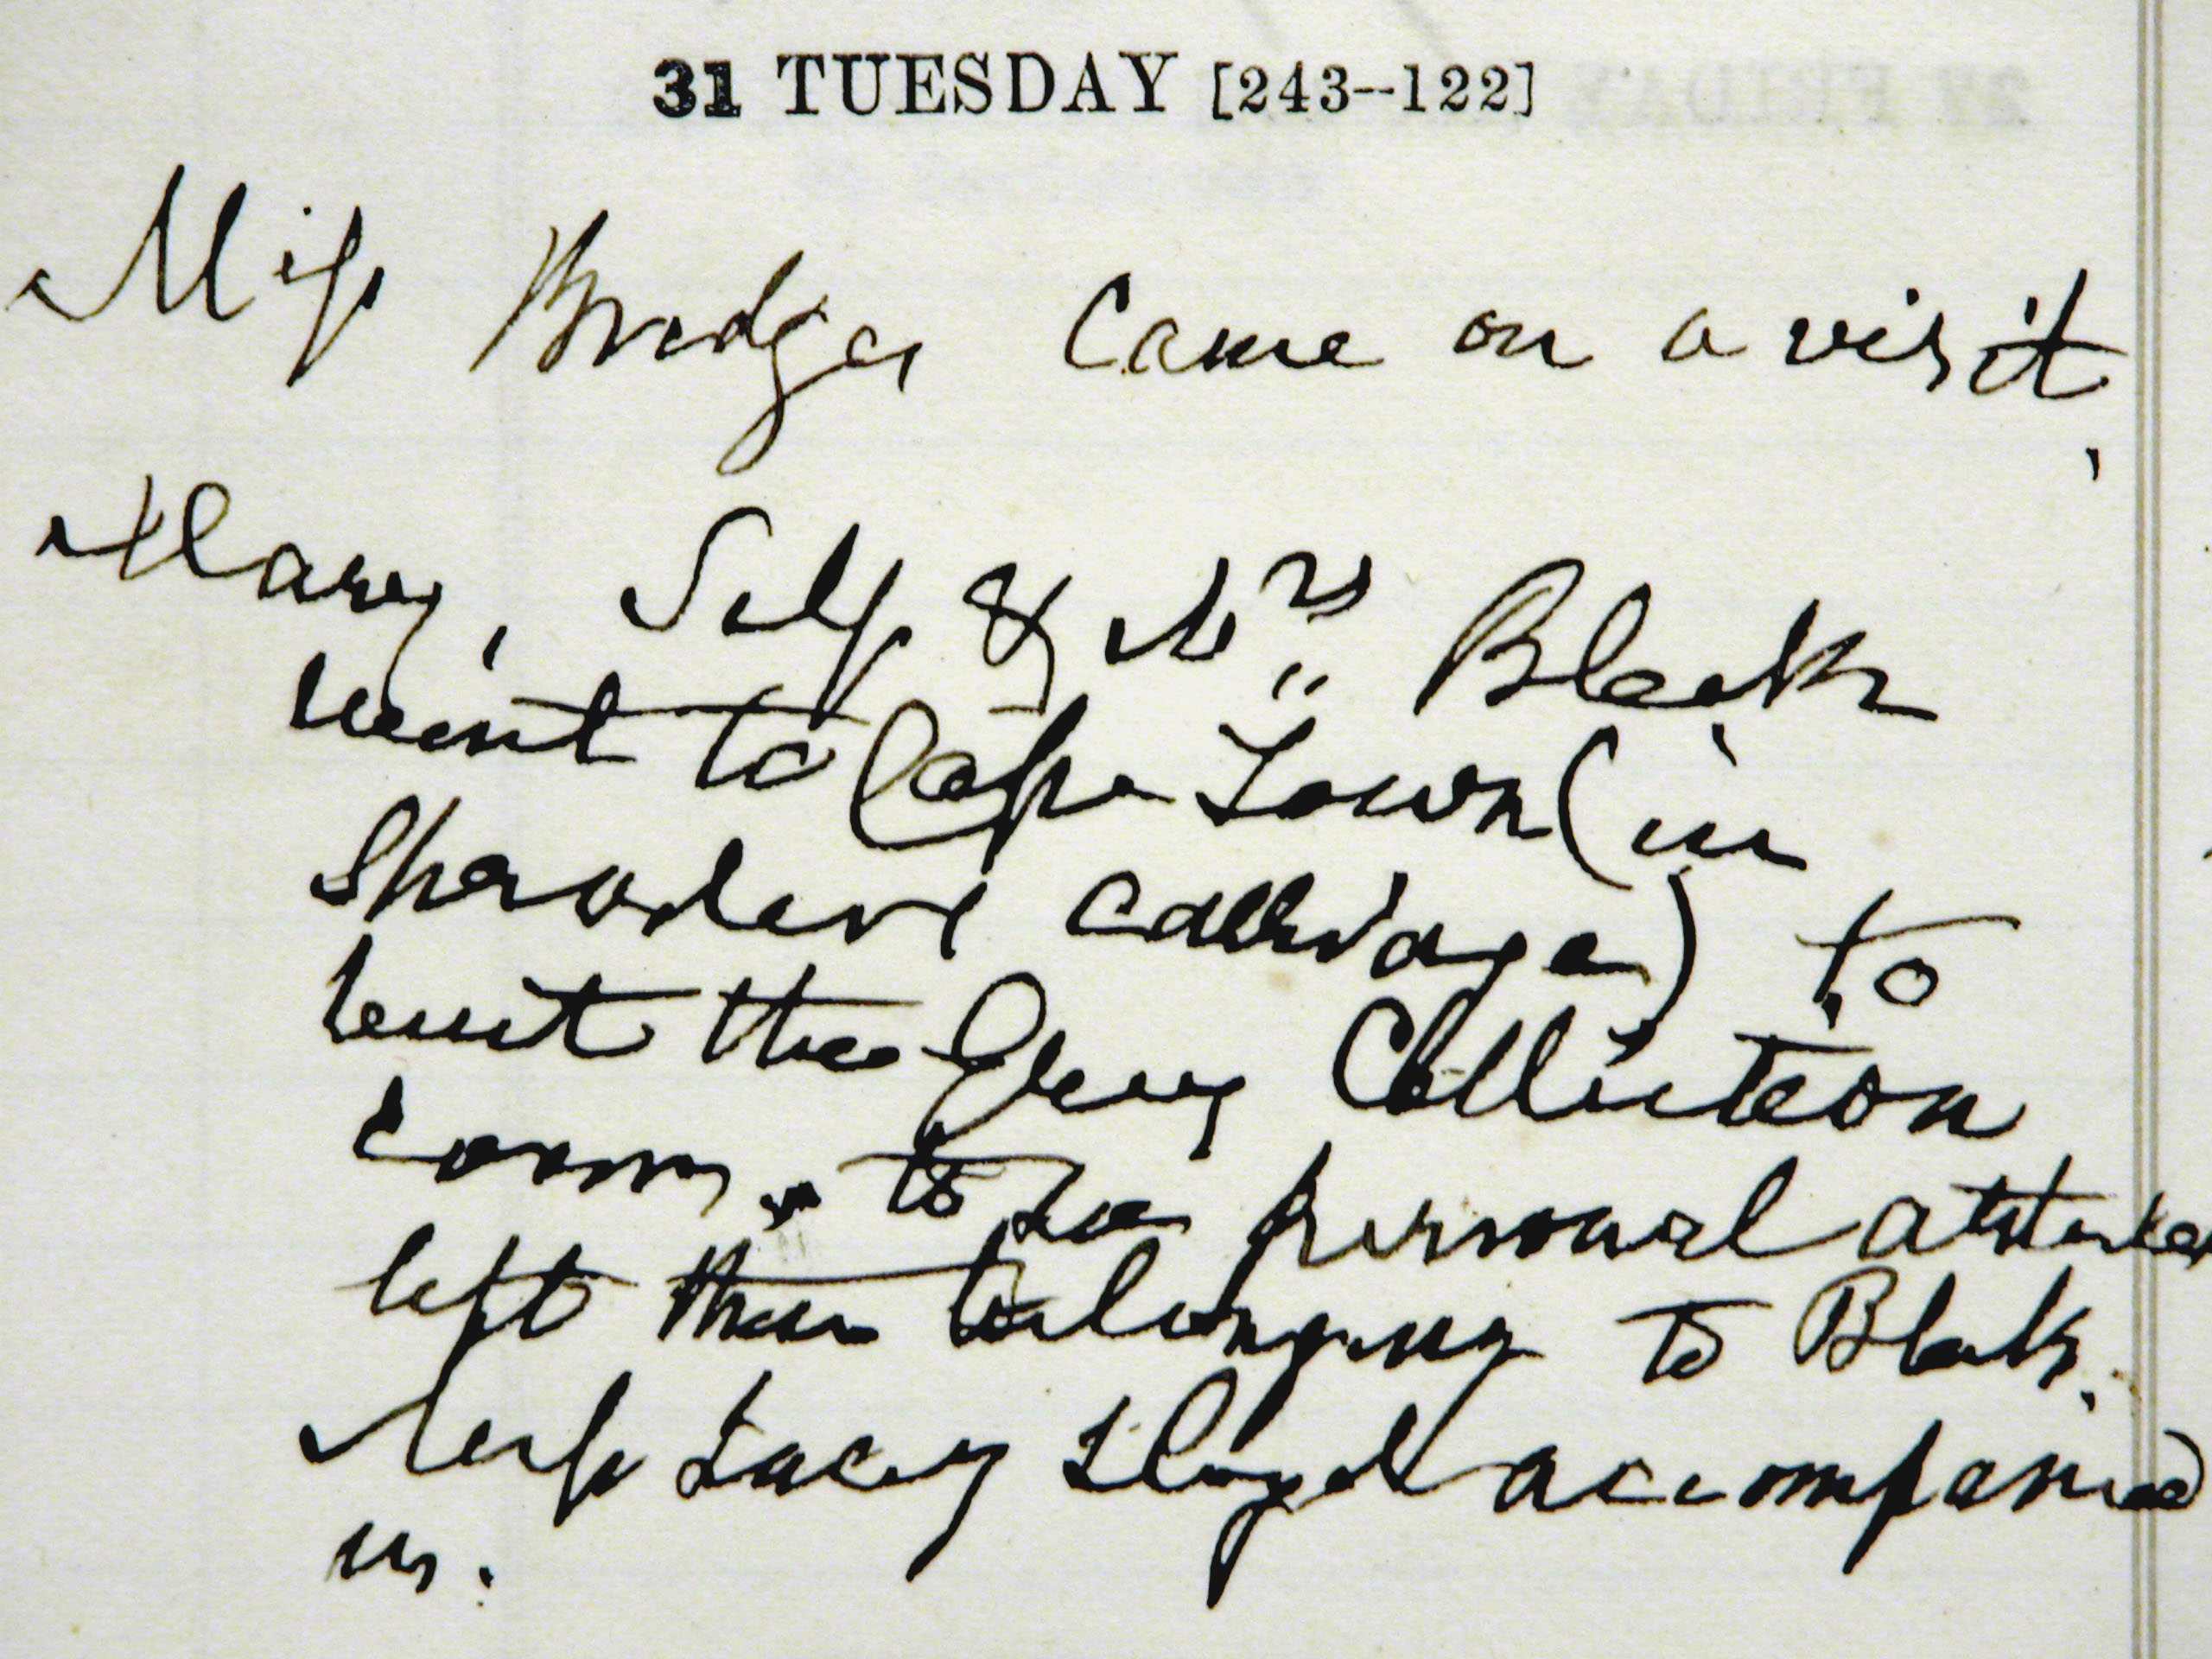 31 TUESDAY [243--122]
Miss Bridges Came on a visit.
Mary, Self & Mrs Bleek
went to Cape Town (in
carriage) to
visit the Grey Collection
rooms to see personal
left there belonging to Bleek.
Miss Lucy Lloyd accompanied
us.